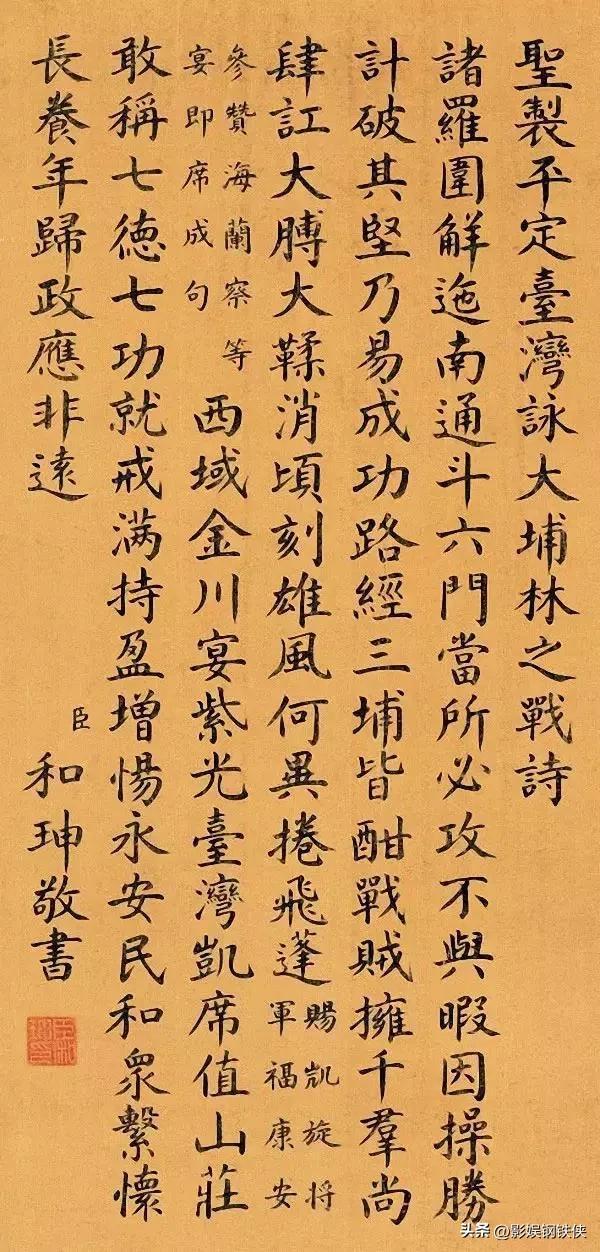 聖製平定臺灣詠大埔林之戰詩
諸羅圍解迤南通斗六門當所必攻不與暇因操勝
計破其堅乃易成功路經三埔皆酣戰賊擁千羣尚
肆訌大膊大鞣消頃刻雄風何異捲飛蓬
賜凱旋将
軍福康安
參贊海蘭察等
宴即席成句
西域金川宴紫光臺灣凱席值山莊
敢稱七德七功就戒满持盈增惕永安民和衆繫懷
長養年歸政應非遠
臣和珅敬書
头条 @影娱钢铁侠